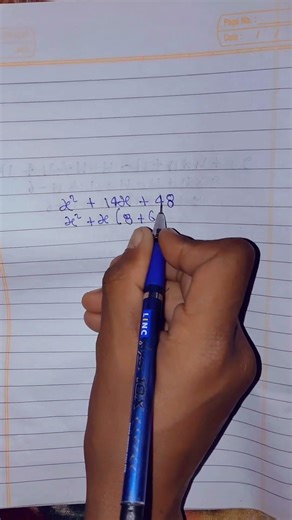 Page No.
Date / /
x² + 14x + 48
x² + x (8 + 6
LINC